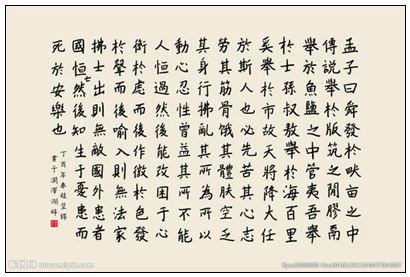 孟子曰舜發於畎畝之中
傅說舉於版筑之間膠鬲
舉於魚鹽之中管夷吾舉
於士孫叔敖舉於海百里
奚舉於市故天將降大任
於斯人也必先苦其心志
勞其筋骨餓其體膚空乏
其身行拂亂其所為所以
動心忍性曾益其所不能
人恒過然後能改困于心
衡於慮而後作徵於色發
於聲而後喻入則無法家
拂士出則無敵國外患者
國恒亡然後知生于憂患而
死於安樂也
丁酉年春
書于
www.nipic.com